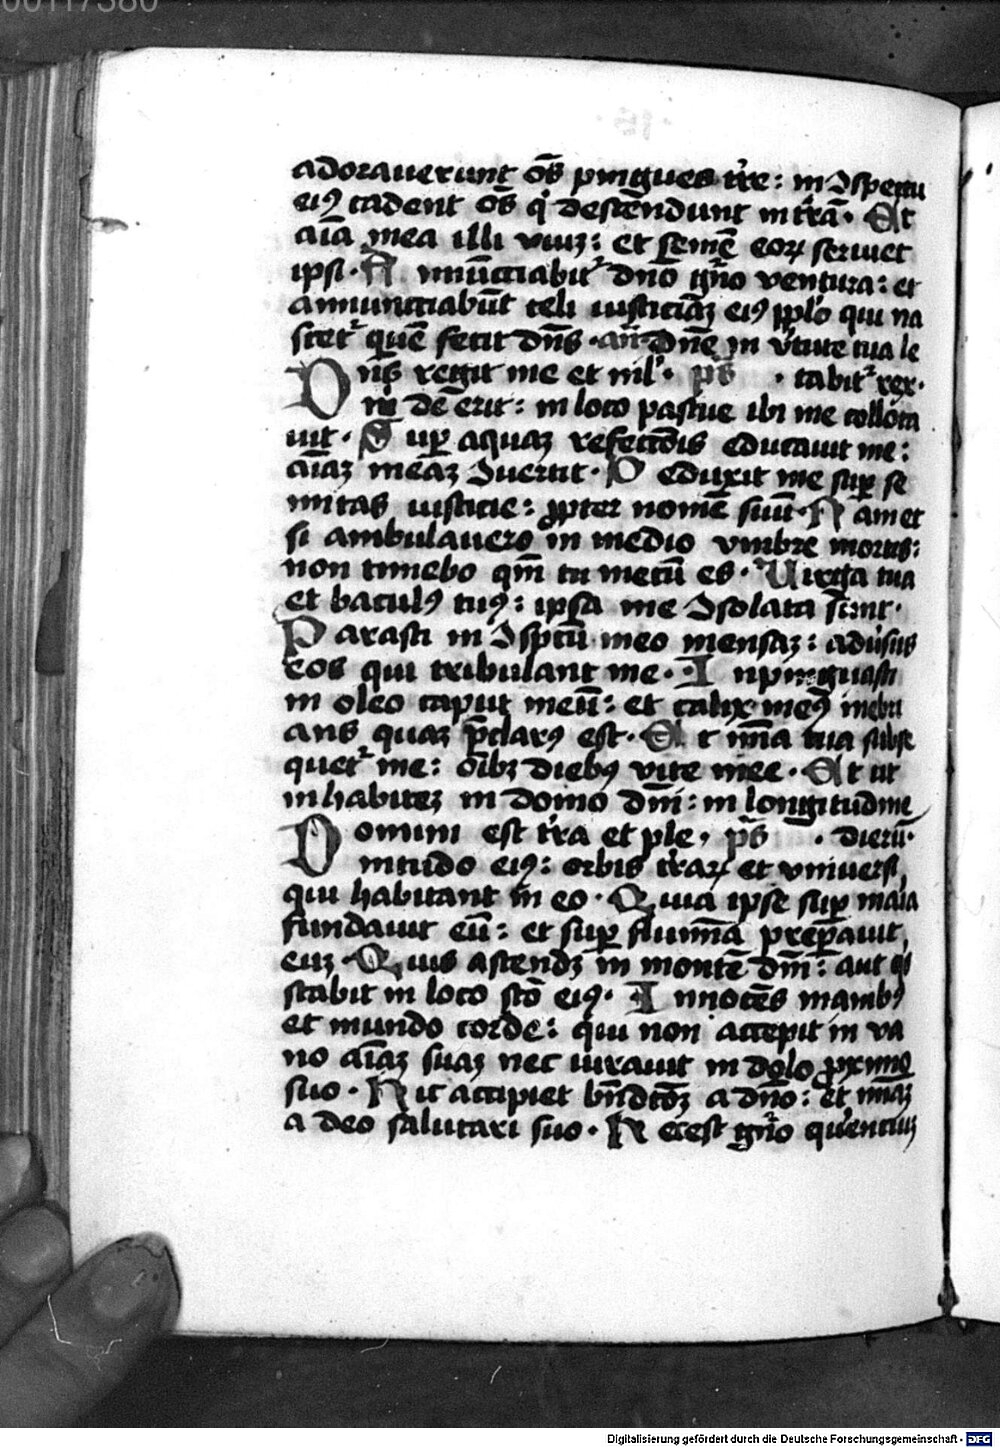 00117380
adorauerunt oēs pingues tr̃e: in ↄspectu
ei⁹ cadent oēs q̇ descēdunt in trā. Et
aīa mea illi viuꝫ: et semē eoꝝ seruiet
ipsi. A nnūciabit᷑ dn̄o gn̄o ventura: et
annunciabūt celi iusticiāꝫ ei⁹ pplo qui na
scet᷑ quē fecit dn̄s. an̄. Dn̄e in v̓tute tua le
Dn̄s regit me et nil̓. ps̄ . tabit᷑ rex.
m̄ deerit: in loco pascue ibi me colloca
uit. S up̲ aquaꝫ refectiōis educauit me:
aīaꝫ meāꝫ ↄuertit. D eduxit me sup̲ se
mitas iusticie: ꝓpter nomē suū. N am et
si ambulauero in medio vmbre mortis:
non timebo qm̄ tu mecū es. Uirga tua
et bacul⁹ tu⁹: ipsa me ↄsolata sunt.
P arasti in ↄsp̄tū meo mensaꝫ: adu̓sus
eos qui tribulant me. I npinguasti
in oleo caput meū: et calix me⁹ inebri
ans quaꝫ p̄clar⁹ est. E t mīa tua subse
quet᷑ me: oībꝫ dieb⁹ vite mee. Et ut
inhabiteꝫ in domo dn̄i: in longitudine
Domini est tr̃a et ple. ps̄ . dierū.
nitudo ei⁹: orbis tr̃aꝝ et vniuersi,
qui habitant in eo. Quia ipse sup̲ maria
fundauit eū: et sup̲ flumīa prep̲auit
euꝫ. Quis ascendꝫ in montē dn̄i: aut q̇s
stabit in loco sc̄o ei⁹. I nnocēs manib⁹
et mundo corde: qui non accepit in va
no aīaꝫ suaꝫ nec iurauit in dolo ꝓximo
suo. Hic accipiet bn̄dcōꝫ a dn̄o: et mīaꝫ
a deo salutari suo. H ec est gn̄o que̓ntiuꝫ
Digitalisierung gefördert durch die Deutsche Forschungsgemeinschaft - DFG